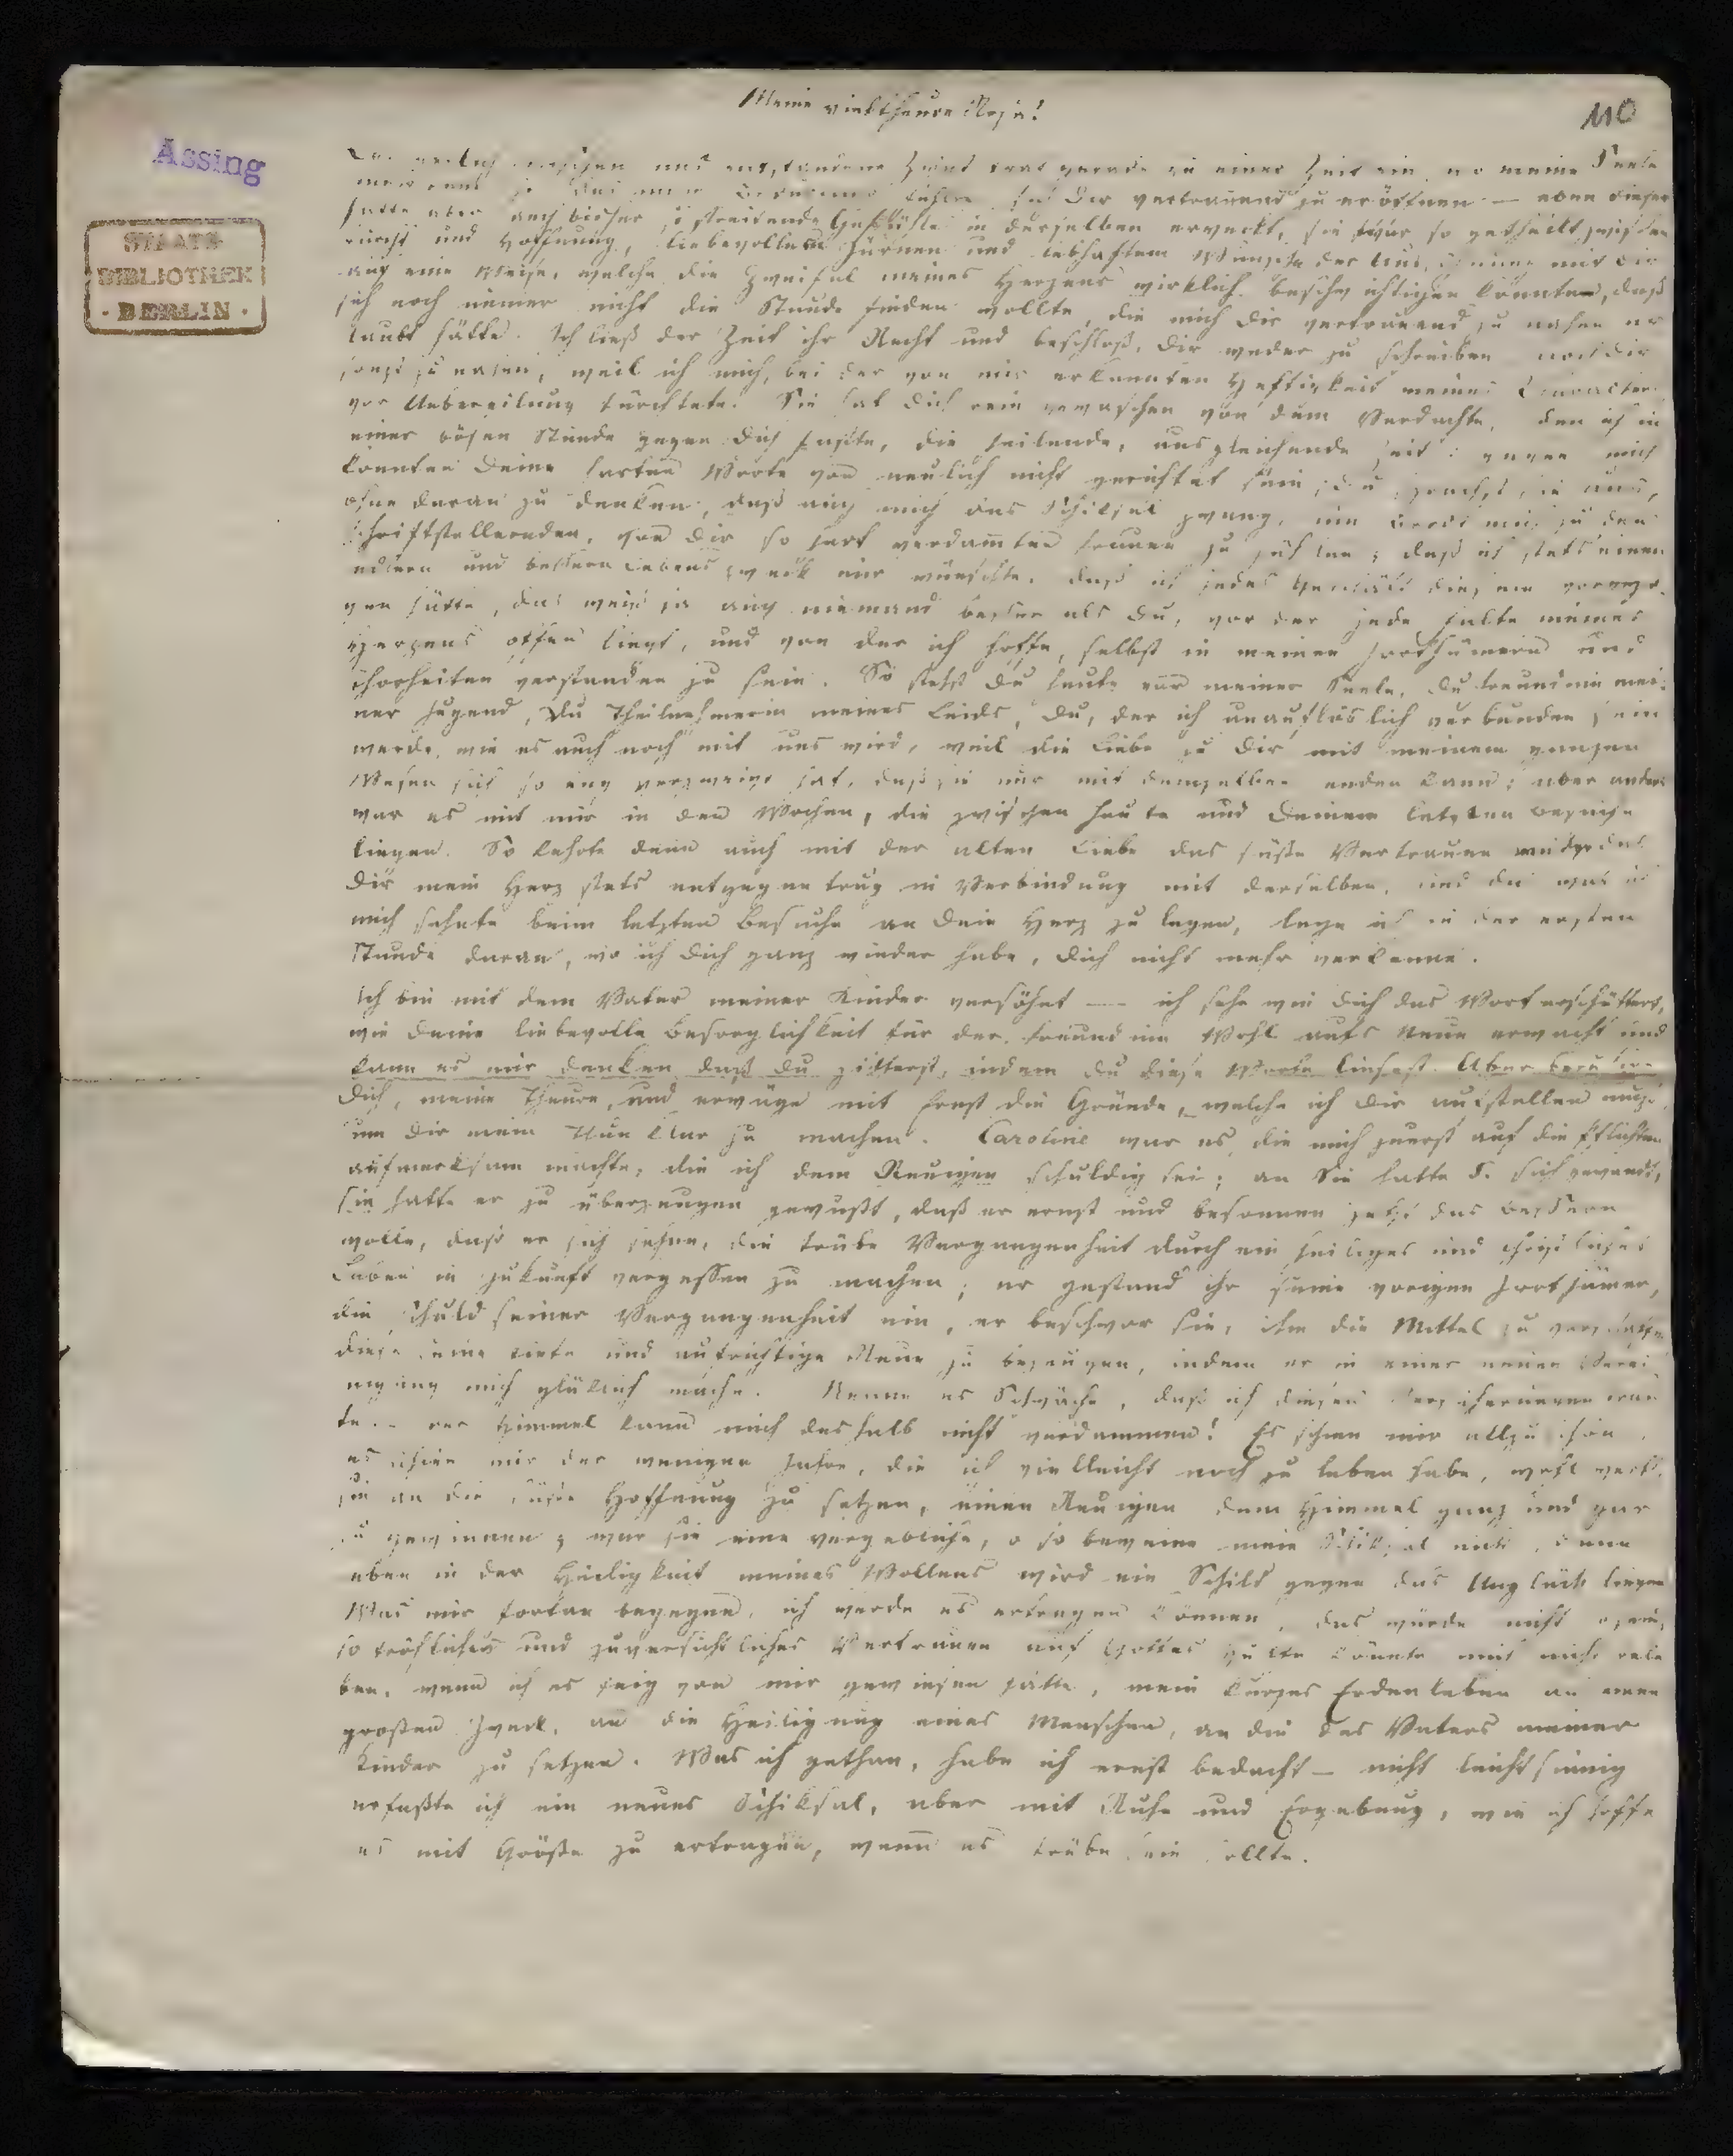 Meine vieltheure Rosa!
110
Assing
STAATS
BIBLIOTHEK
· BERLIN ·
neulich zwischen uns entstandene Zwist trat gerade zu einer Zeit ein, wo meine Seele
Dir vertrauend zu eröffnen — eben dieser
hatte aber auch bisher streitende Gefühle in derselben erweckt, sie war so getheilt zwischen
Furcht und Hoffnung, liebevollem Zürnen und lebhaftem Wunsche der mit Dir
auf eine Weise, welche die Zweifel meines Herzens wirklich beschwichtigen könnten, daß
sich noch immer nicht die Stunde finden wollte, die mich Dir vertrauend zu nahen er
laubt hätte. Ich ließ der Zeit ihr Recht und beschloß, Dir weder zu schreiben noch Dir
sonst zu nahen, weil ich mich, bei der von mir erkannten Heftigkeit meines Characters
vor Uebereilung fürchtete. Sie hat Dich rein gewaschen von dem Verdachte, den ich in
einer bösen Stunde gegen Dich faßte, die heilende, ausgleichende Zeit: gegen mich
konnten Deine harten Worte von neulich nicht gerichtet sein; Du sprachst sie aus,
ohne daran zu denken, daß auch mich das Schiksal zwang, um Brodt mich zu den
schriftstellernden, von Dir so hart verdamten Frauen zu gesellen; daß ich stets einen
edlern und bessern Lebenszweck mir wünschte, daß ich jedes Geschäft diesem vorgezo-
gen hätte, das weiß ja auch niemand besser als Du, vor der jede Falte meines
Herzens offen liegt, und von der ich hoffe, selbst in meinen Irrthümern und
Thorheiten verstanden zu sein. So stehst Du heute vor meiner Seele, Du Freundin mei-
ner Jugend, Du Theilnehmerin meines Leids, Du, der ich unauflöslich verbunden sein
werde, wie es auch noch mit uns wird, weil die Liebe zu Dir mit meinem ganzen
Wesen sich so eng verzweigt hat, daß sie nur mit demselben enden kann; aber anders
war es mit mir in den Wochen, die zwischen heute und Deinem letzten Besuche
liegen. So kehrte denn auch mit der alten Liebe das süße Vertrauen wieder das
Dir mein Herz stets entgegentrug in Verbindung mit derselben, und da was ich
mich sehnte beim letzten Besuche an Dein Herz zu legen, lege ich in der ersten
Stunde daran, wo ich Dich ganz wieder habe, Dich nicht mehr verkenne.
Ich bin mit dem Vater meiner Kinder versöhnt — ich sehe wie Dich das Wort erschüttert,
wie Deine liebevolle Besorglichkeit für der Freundin Wohl aufs Neue erwacht und
kann es mir denken daß Du zitterst, indem Du diese Worte liesest. Aber beruhige
Dich, meine Theure, und erwäge mit Ernst die Gründe, welche ich Dir aufstellen muß,
um Dir mein Thun klar zu machen. Caroline war es, die mich zuerst auf die Pflichten
aufmerksam machte, die ich dem Reuigen schuldig sei; an Sie hatte S. sich gewandt,
sie hatte er zu überzeugen gewußt, daß er ernst und besonnen jetzt das Bessere
wolle, daß er sich sehne, die trübe Vergangenheit durch ein heiliges und christliches
Leben in Zukunft vergessen zu machen; er gestand ihr seine vorigen Irrthümer,
die Schuld seiner Vergangenheit ein, er beschwor sie, ihm die Mittel zu verschaffen
diese seine tiefe und aufrichtige Reue zu bezeugen, indem er in einer neuen Verei-
nigung mich glüklich mache. Nenne es Schwäche, daß ich diesen Versicherungen trau-
te — der Himmel kann mich deshalb nicht verdammen! Es schien mir allzu schön,
es schien mir der wenigen Jahre, die ich vielleicht noch zu leben habe, wohl werth,
sie an die süße Hoffnung zu setzen, einen Reuigen dem Himmel ganz und gar
zu gewinnen; war sie eine vergebliche, o so beweine mein Schiksal nicht, denn
eben in der Heiligkeit meines Wollens wird ein Schild gegen das Unglück liegen
Was mir fortan begegnet, ich werde es ertragen können, das würde nicht
so tröstliches und zuversichtliches Vertrauen auf Gottes Hülfe könnte mich nicht bele
ben, wenn ich es feig von mir gewiesen hätte, mein kurzes Erdenleben an einen
großen Zweck, an die Heiligung eines Menschen, an die des Vaters meiner
Kinder zu setzen. Was ich gethan, habe ich ernst bedacht — nicht leichtsinnig
erfaßte ich ein neues Schiksal, aber mit Ruhe und Ergebung, wie ich hoffe
es mit Größe zu ertragen, wenn es trübe sein sollte.